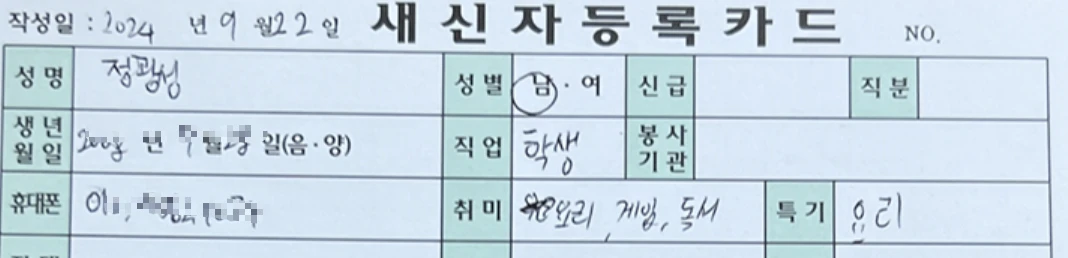 작성일 : 2024 년 9 월 22 일 새신자등록카드 NO.
성명 정광성 성별 남 · 여 신급 직분
생년월일 년 일(음 · 양) 직업 학생 봉사기관
휴대폰 취미 요리, 게임, 독서 특기 요리